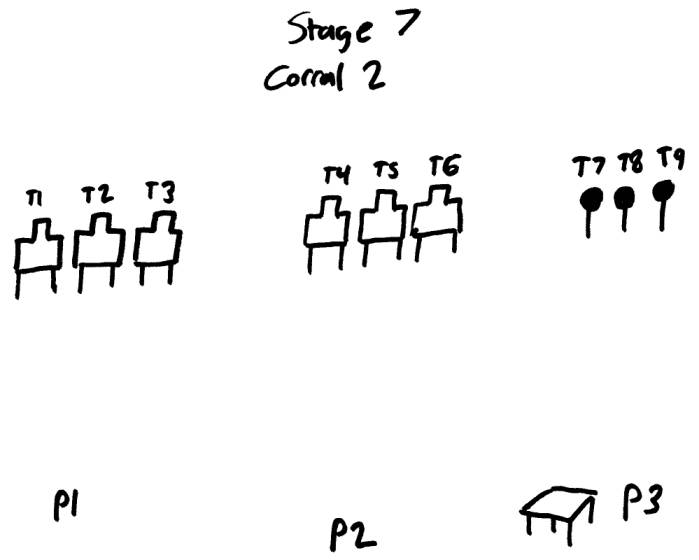 Stage 7
Corral 2
T1 T2 T3 T4 T5 T6 T7 T8 T9
P1 P2 P3